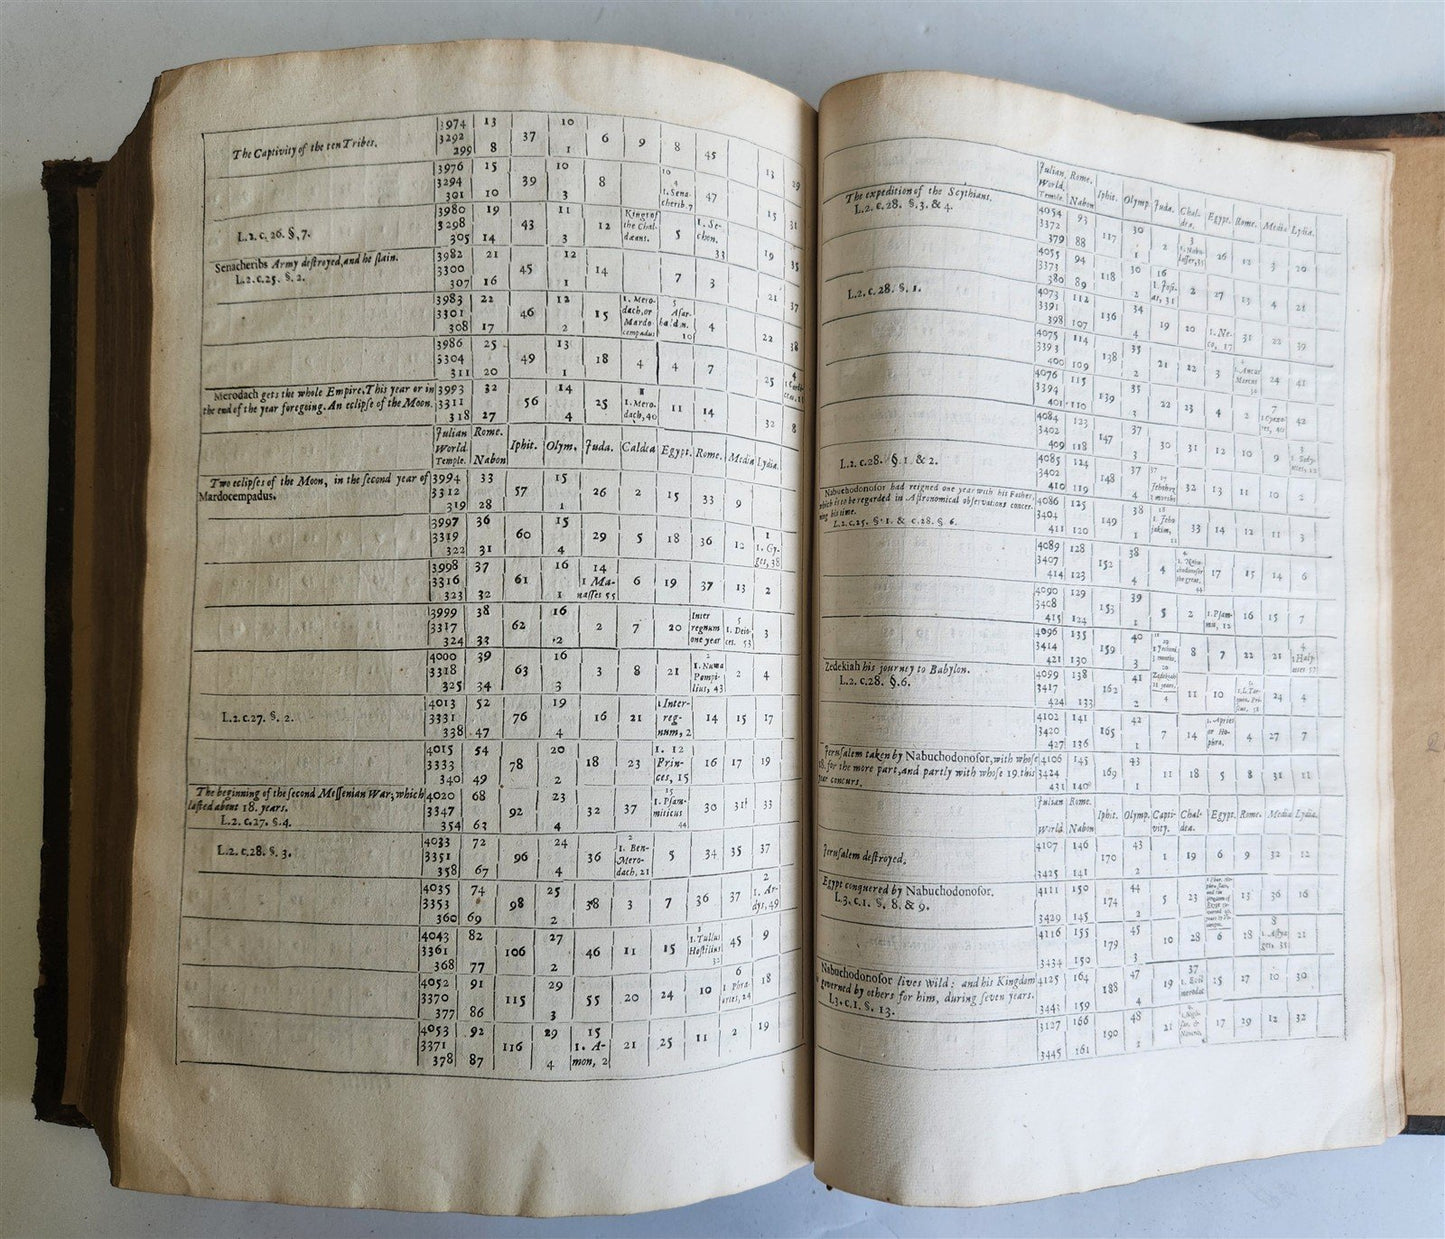 The Captivity of the ten Tribes. 3974 13 37 10 6 9 8 45 13 29
3292
299 8 1
3976 15 39 10 8 10 47 15 31
3294 4
301 10 3 1. Senacherib. 7
3980 19 43 11 12 Kings of the Chaldæans. 5 1. Sechon. 19 35
L.2. c. 26. §. 7. 3298
305 14 3 33
Senacheribs Army deſtroyed, and he ſlain. 3982 21 45 12 14 7 3 21 37
L.2. c.25. §. 2. 3300
307 16 1
3983 22 46 12 15 1. Merodach, or Mardocempadus 5 4 22 38
3301 Aſarhaddon.
308 17 2 10
3986 25 49 13 18 4 4 7 25 4
3304
311 20 1
Merodach gets the whole Empire. This year or in 3993 32 56 14 25 1 11 14 32 8
the end of the year foregoing. An eclipſe of the Moon. 3311 1. Merodach, 40
318 27 4
Julian Rome. Iphit. Olym. Juda. Caldea Egypt. Rome. Media Lydia.
World
Temple. Nabon
Two eclipſes of the Moon, in the ſecond year of 3994 33 57 15 26 2 15 33 9
Mardocempadus. 3312
319 28 1
3997 36 60 15 29 5 18 36 12 1
3319 1. Gyges, 38
322 31 4
3998 37 61 16 14 6 19 37 13 2
3316 1 Manaſſes 55
323 32 1
3999 38 62 16 2 7 20 Inter regnum one year 5 3
3317 1. Deioces. 53
324 33 2
4000 39 63 16 3 8 21 2 2 4
3318 1. Numa Pompilius, 43
325 34 3
4013 52 76 19 16 21 1 Interregnum, 2 14 15 17
L.2. c.27. §. 2. 3331
338 47 4
4015 54 78 20 18 23 1. 12 Princes, 15 16 17 19
3333
340 49 2
The beginning of the ſecond Meſſenian War, which 4020 68 92 23 32 37 15 30 31 33
laſted about 18. years. 3347 1. Pſammiticus
L.2. c.27. §. 4. 354 63 4 44
4033 72 96 24 36 2 5 34 35 37
L.2. c.28. §. 3. 3351 1. Ben-Merodach, 21
358 67 4
4035 74 98 25 38 3 7 36 37 2
3353 1. Ardys, 49
360 69 2
4043 82 106 27 46 11 15 3 45 9
3361 1. Tullus Hoſtilius
368 77 2 32
4052 91 115 29 55 20 24 10 6 18
3370 1 Phraortes, 24
377 86 3
4053 92 116 29 15 21 25 11 2 19
3371 1. Amon, 2
378 87 4
Julian Rome. Iphit. Olymp. Juda. Chaldea. Egypt. Rome. Media Lydia.
World.
Temple. Nabon
The expedition of the Scythians. 4054 93 117 30 2 3 26 12 3 20
L.2. c. 28. §. 3. & 4. 3372
379 88 1
4055 94 118 30 16 2 27 13 4 21
3373 1. Joſias, 31
L.2. c. 28. §. 1. 380 89 2
4073 112 136 34 19 20 1. Neco, 17 31 22 39
3391
398 107 4
4075 114 138 35 21 22 3 24 41
3393 1. Ancus Martius
400 109 2
4076 115 139 35 22 23 4 2 7 42
3394
401 110 3
4084 123 147 37 30 31 12 10 9
3402
409 118 3
L.2. c.28. §. 1. & 2. 4085 124 148 37 32 13 11 10 2
3402
410 119 4
Nabuchodonoſor had reigned one year with his Father, 4086 125 149 38 18 33 14 12 11 3
which is to be regarded in Aſtronomical obſervations concerning his time. 3404 1. Jehojakim, 11
L.2. c.25. §. 1. & c.28. § 6. 411 120 1
4089 128 152 38 4 4 17 15 14 6
3407 1. Nabuchodonoſor the great, 44
414 123 4
4090 129 153 39 5 2 1. Pſammu, 12 16 15 7
3408
415 124 1
4096 135 159 40 8 7 22 21 4
3414
421 130 3
Zedekiah his journey to Babylon. 4099 138 162 41 4 11 10 24 4
L.2. c.28. §. 6. 3417
424 133 2
4102 141 165 42 7 14 1. Apries or Hophra. 4 27 7
3420
427 136 1
Jeruſalem taken by Nabuchodonoſor, with whoſe 4106 145 169 43 11 18 5 8 31 11
18. for the more part, and partly with whoſe 19. this 3424
year concurs. 431 140 1
Julian Rome. Iphit. Olymp. Captivity. Chaldea. Egypt. Rome. Media Lydia.
World. Nabon
Jeruſalem deſtroyed. 4107 146 170 43 1 19 6 9 32 12
3425 141 2
Egypt conquered by Nabuchodonoſor. 4111 150 174 44 5 23 13 36 16
L.3. c.1. §. 8. & 9. 3429 145 2
4116 155 179 45 10 28 6 18 8 21
1. Aſtyages. 35
3434 150 3
Nabuchodonoſor lives wild: and his Kingdom 4125 164 188 47 19 37 15 27 10 30
governed by others for him, during ſeven years. 1. Evil merodac
L.3. c.1. §. 13. 3443 159 4
3127 166 190 48 21 17 29 12 32
3445 161 2